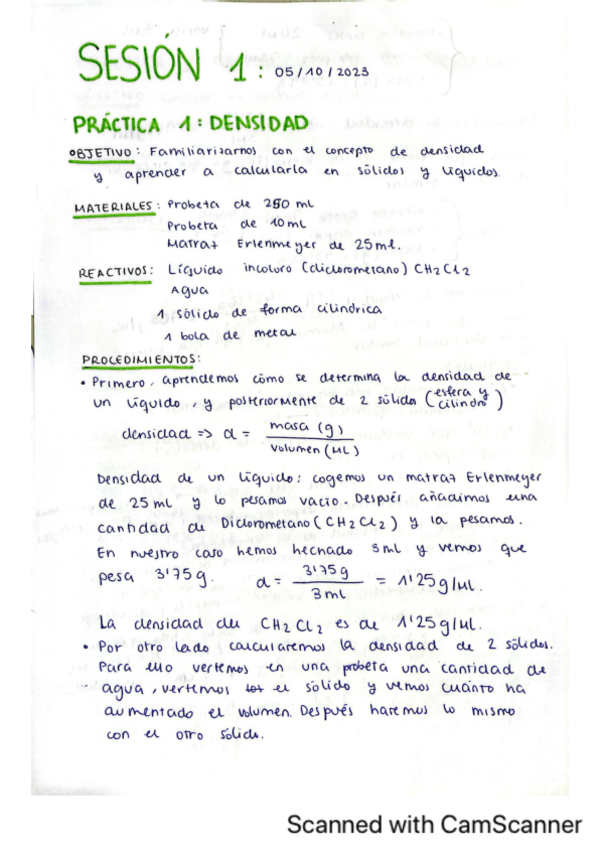 SESIÓN 1: 05/10/2023
PRÁCTICA 1: DENSIDAD
OBJETIVO: Familiarizarnos con el concepto de densidad
y aprender a calcularla en sólidos y líquidos.
MATERIALES: Probeta de 250 ml
Probeta de 10 ml
Matraz Erlenmeyer de 25 ml.
REACTIVOS: Líquido incoloro (diclorometano) CH2Cl2
Agua
1 sólido de forma cilíndrica
1 bola de metal
PROCEDIMIENTOS:
• Primero, aprendemos cómo se determina la densidad de
un líquido, y posteriormente de 2 sólido (esfera y cilindro)
densidad => d = masa (g) / volumen (ml)
Densidad de un líquido: cogemos un matraz Erlenmeyer
de 25 ml y lo pesamos vacío. Después añadimos una
cantidad de Diclorometano (CH2Cl2) y la pesamos.
En nuestro caso hemos hechado 3 ml y vemos que
pesa 3'75 g. d = 3'75 g / 3 ml = 1'25 g/ml.
La densidad del CH2Cl2 es de 1'25 g/ml.
• Por otro lado calcularemos la densidad de 2 sólidos.
Para ello vertemos en una probeta una cantidad de
agua, vertemos el sólido y vemos cuánto ha
aumentado el volumen. Después haremos lo mismo
con el otro sólido.
Scanned with CamScanner